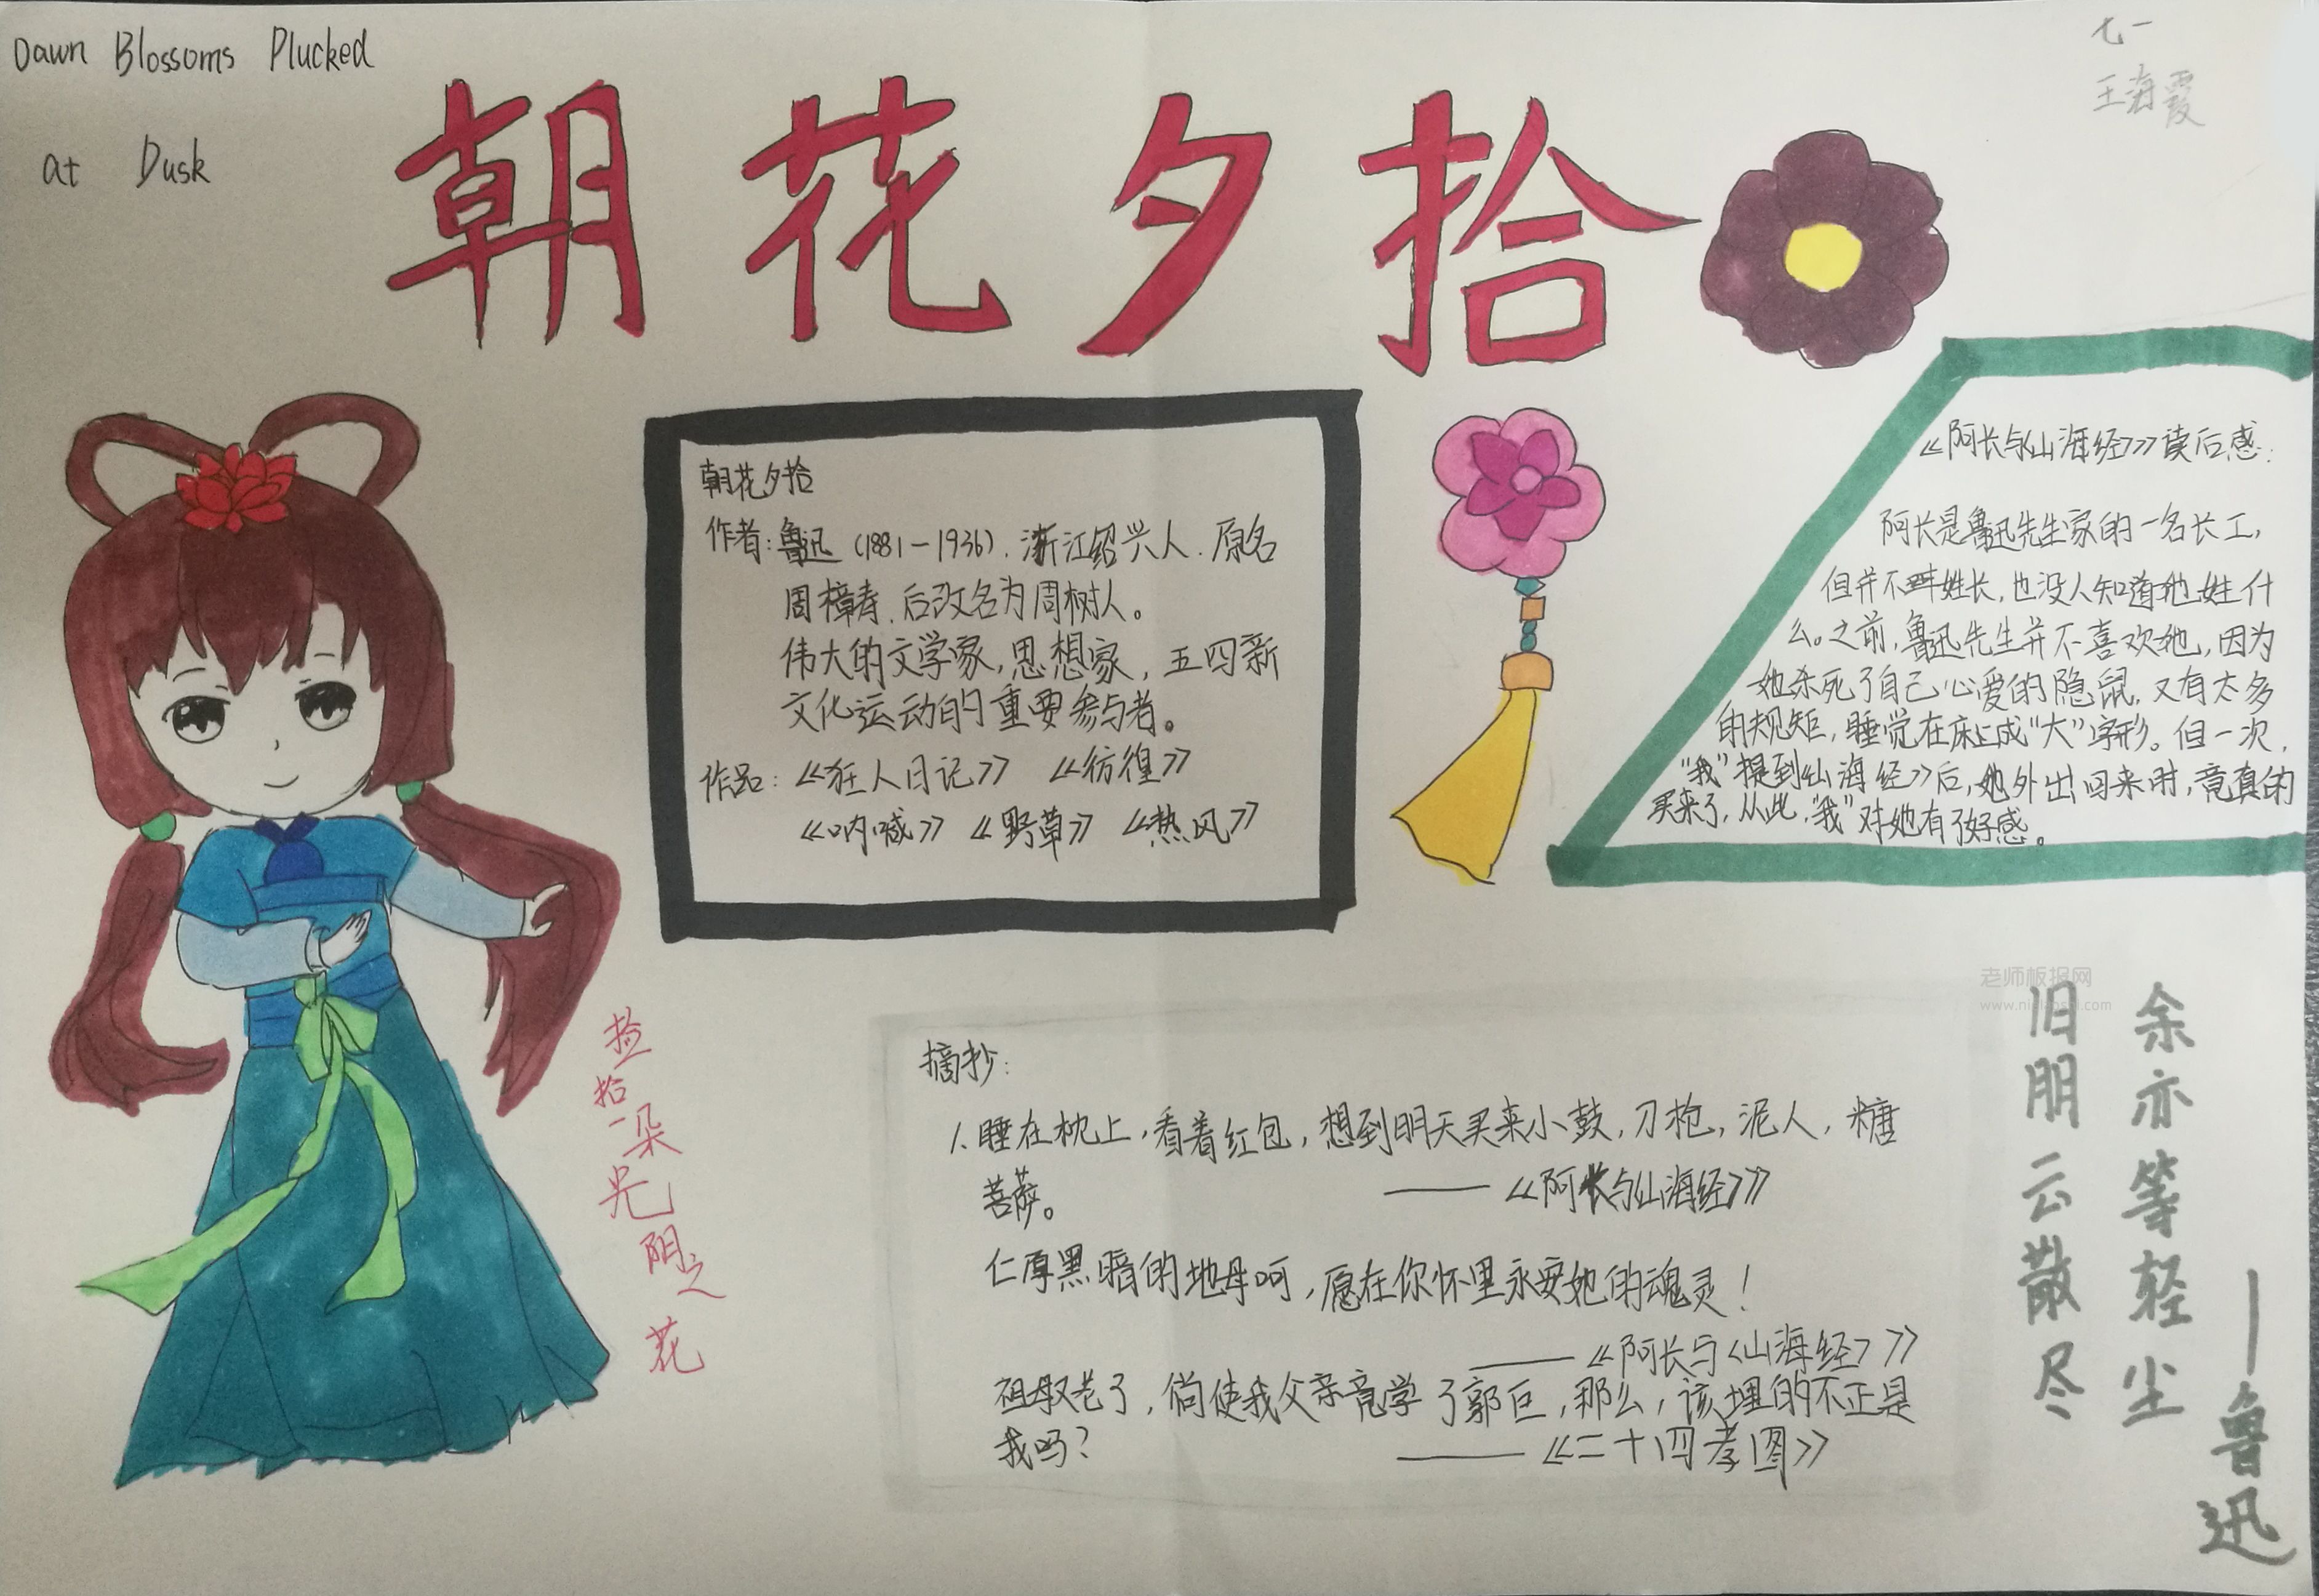 Dawn Blossoms Plucked
at Dusk
七一
王海霞
朝花夕拾
朝花夕拾
作者:鲁迅(1881-1936).浙江绍兴人.原名
周樟寿.后改名为周树人。
伟大的文学家,思想家,五四新
文化运动的重要参与者。
作品:《狂人日记》 《彷徨》
《呐喊》《野草》《热风》
《阿长与《山海经》》读后感:
阿长是鲁迅先生家的一名长工,
但并不姓长,也没人知道她姓什
么。之前,鲁迅先生并不喜欢她,因为
她杀死了自己心爱的隐鼠,又有太多
的规矩,睡觉在床上成“大”字形。但一次,
“我”提到《山海经》后,她外出回来时,竟真的
买来了,从此,“我”对她有了好感。
捡拾一朵光阴之花
摘抄:
1.睡在枕上,看着红包,想到明天买来小鼓,刀枪,泥人,糖
菩萨。 ——《阿长与《山海经》》
仁厚黑暗的地母呵,愿在你怀里永安她的魂灵!
——《阿长与〈山海经〉》
祖母又老了,倘使我父亲竟学了郭巨,那么,该埋的不正是
我吗? ——《二十四孝图》
老师板报网
旧朋云散尽
余亦等轻尘
——鲁迅